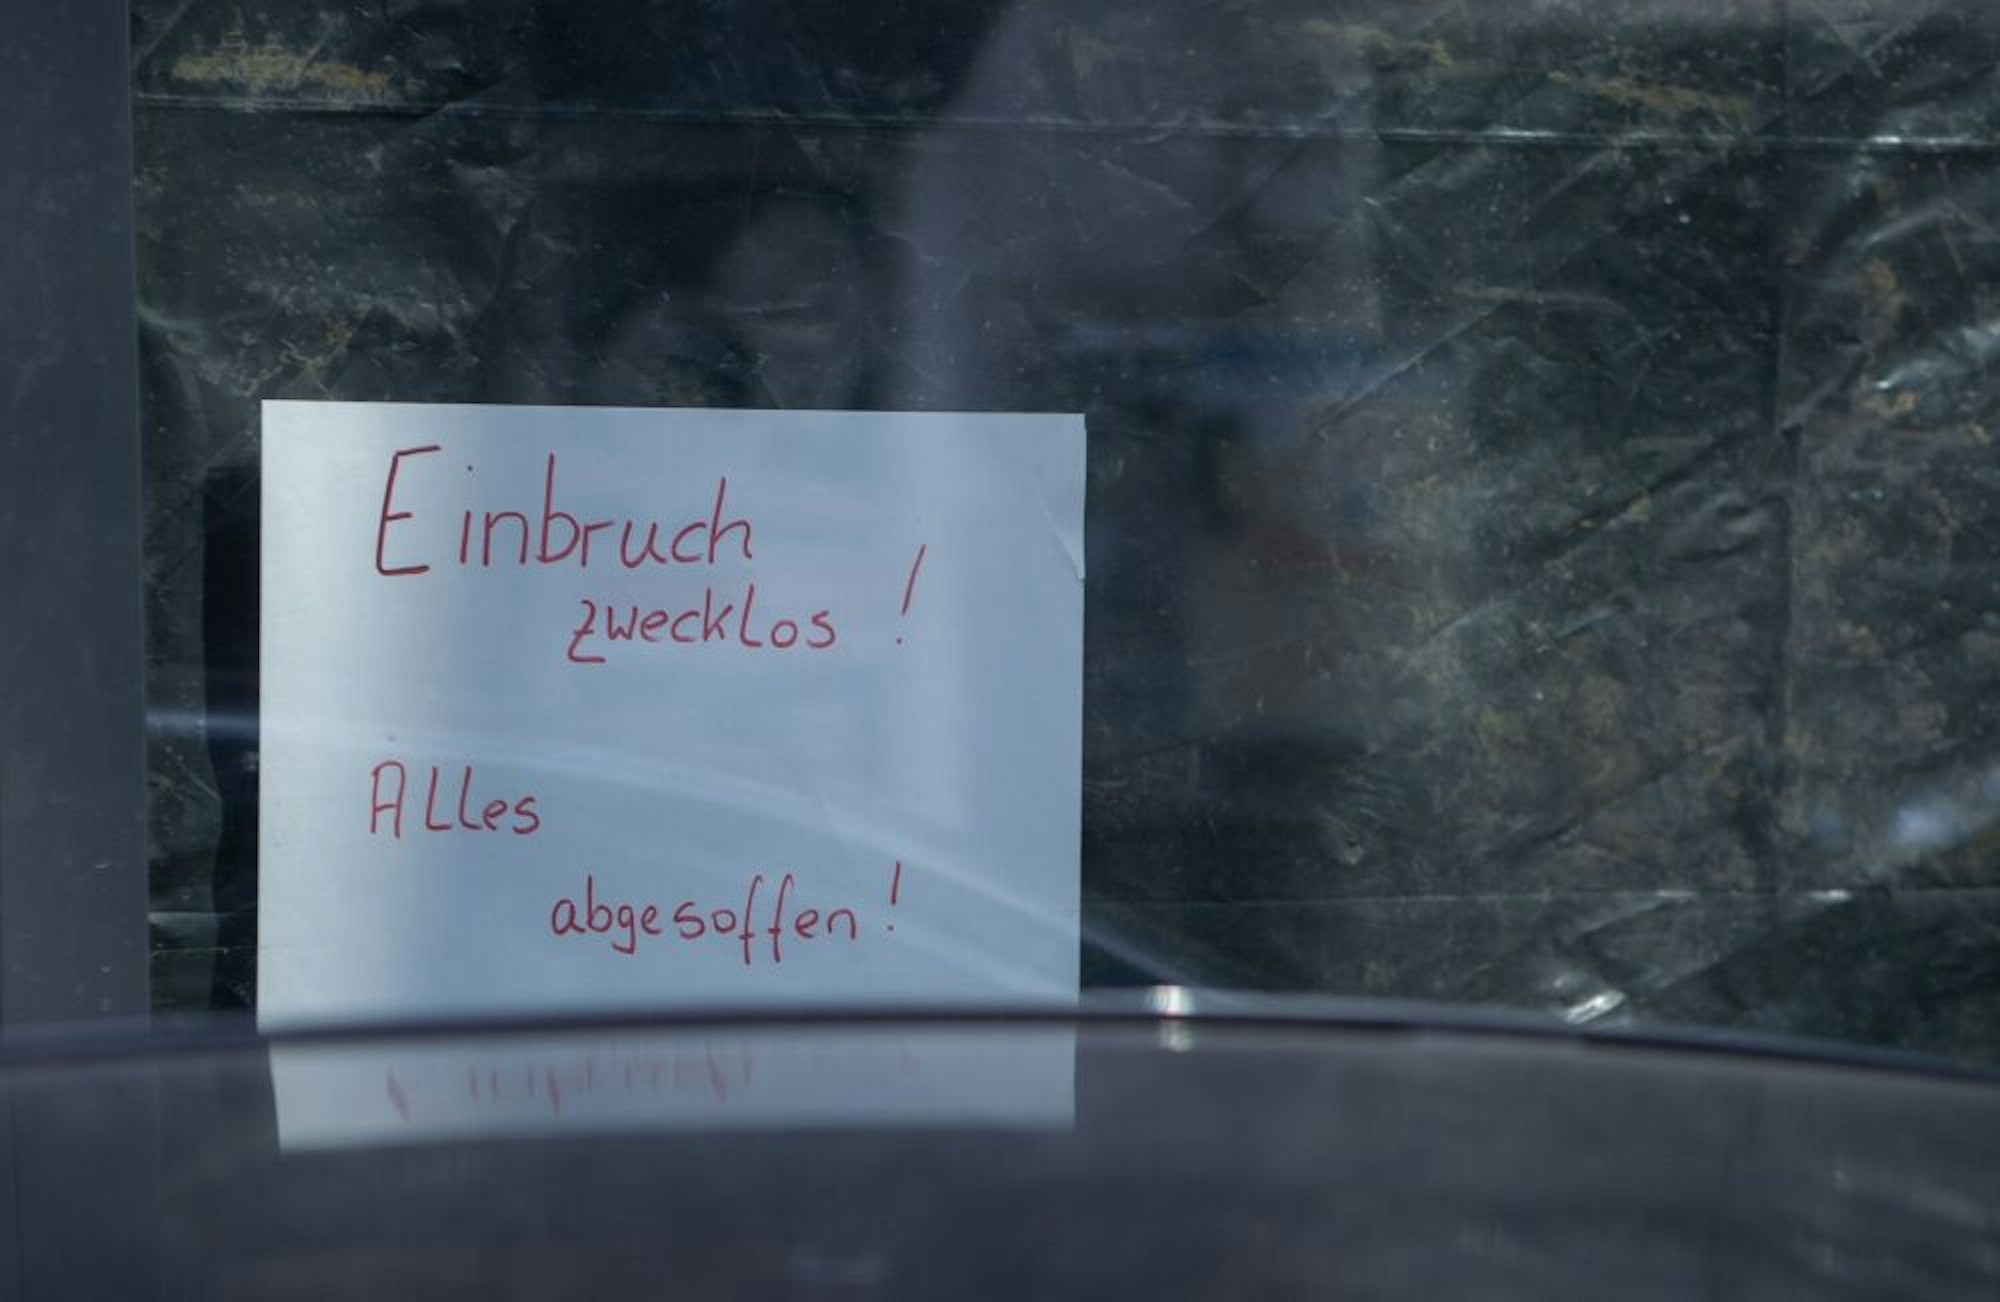 Einbruch
zwecklos !
Alles
abgesoffen !